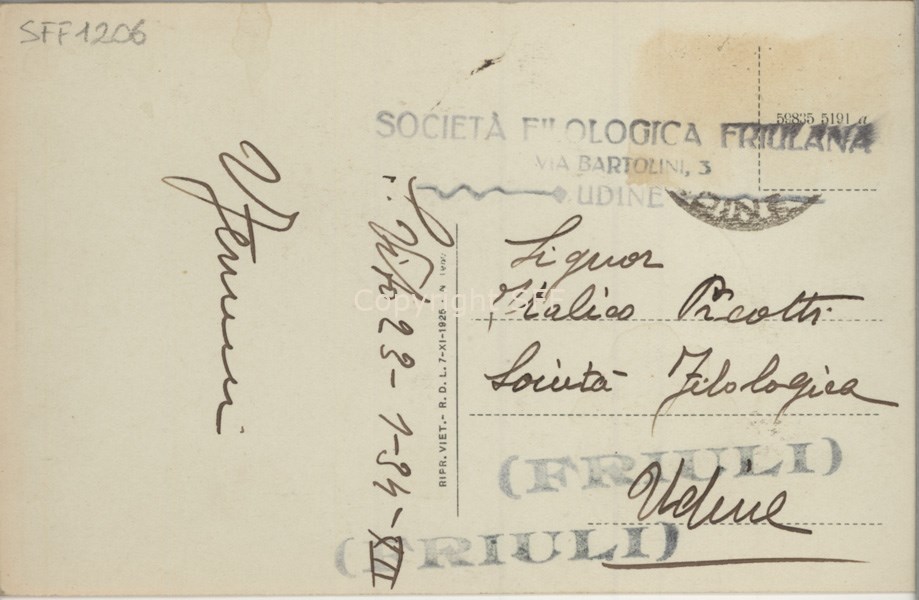 SFF1206
SOCIETÀ FILOLOGICA FRIULANA
VIA BARTOLINI, 3
UDINE
59835 5191 a
Signor
Italico Picotti
Società Filologica
Udine
(FRIULI)
(FRIULI)
S. Vito 23-1-34-XII
RIPR. VIET. - R. D. L. 7-XI-1925 - N.
Copyright SFF